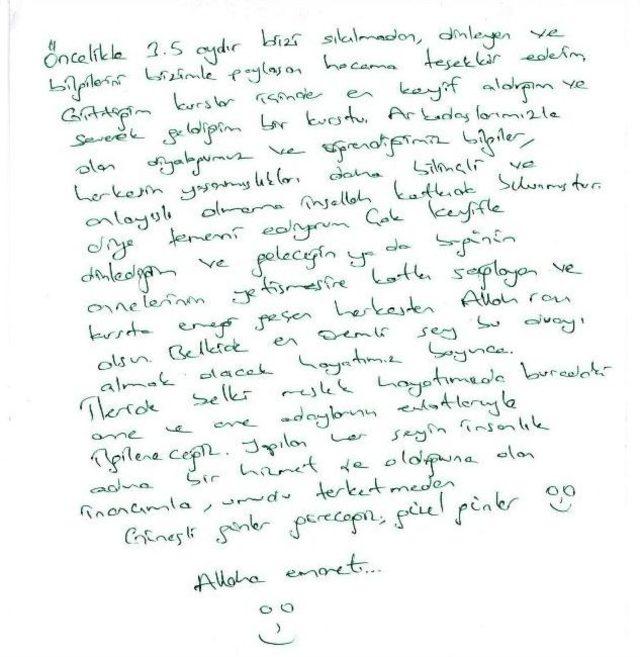 Öncelikle 3.5 aydır bizi sıkılmadan, dinleyen ve
bilgilerini bizimle paylaşan hocama teşekkür ederim.
Gittiğim kurslar içinde en keyif aldığım ve
severek geldiğim bir kurstu. Arkadaşlarımızla
olan diyaloğumuz ve öğrendiğimiz bilgiler,
herkesin yaşanmışlıkları daha bilinçli ve
anlayışlı olmama inşallah katkıda bulunmuştur.
diye temenni ediyorum. Çok keyifle
dinlediğim ve geleceğin ya da bugünün
annelerinin yetişmesine katkı sağlayan ve
kursta emeği geçen herkesten Allah razı
olsun. Belkide en önemli şey bu duayı
almak olacak hayatımız boyunca.
İleride belki meslek hayatımızda buradaki
anne ve anne adaylarının evlatlarıyla
ilgileneceğiz. Yapılan her şeyin insanlık
adına bir hizmet ve olduğuna olan
inancımla, umudu terketmeden
Güneşli günler göreceğiz, güzel günler
Allaha emanet...